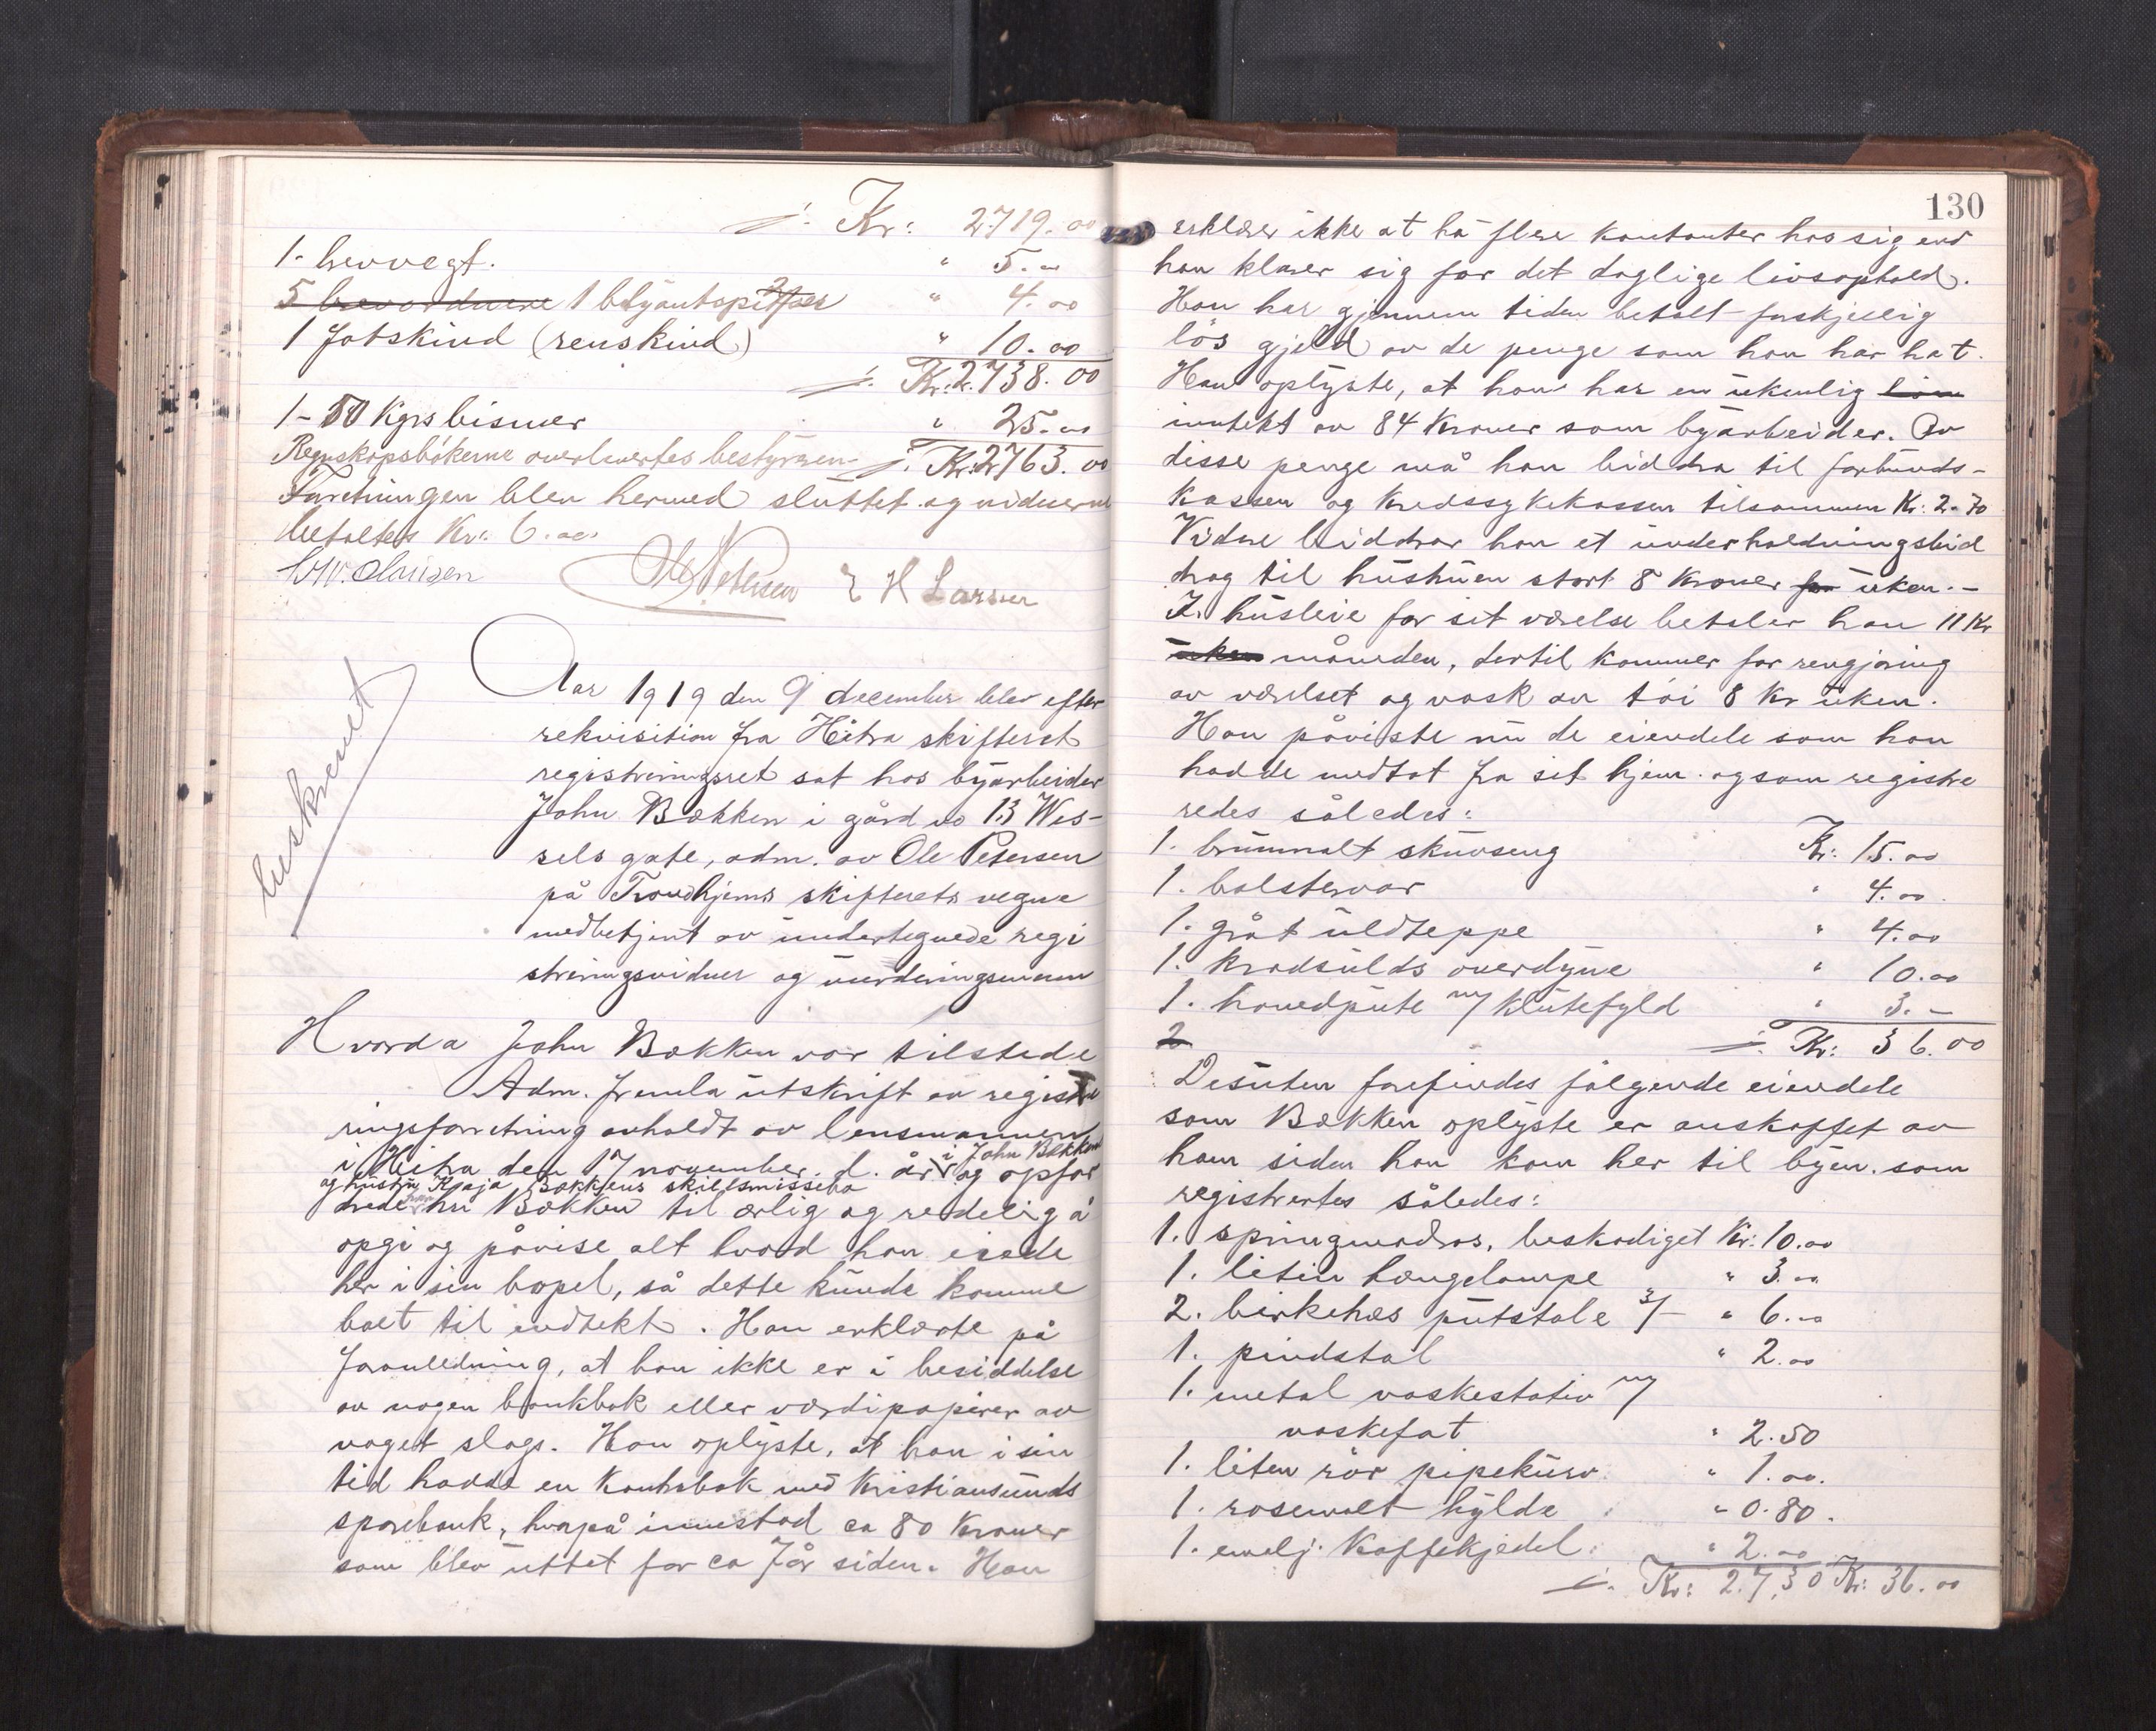 ./. Kr: 2719.00
1. brevvegt. " 5.00
5 brevordnere 1 blyantspidser " 4.00
1 fotskind (renskind) " 10.00
./. Kr. 2738.00
1 - 50 Kgrs bismer " 25.00
Regnskapsbökerne overlevertes bestyreren ./. Kr. 2763.00
Forretningen blev hermed sluttet og vidnerne
betaltes Kr. 6.00.
Ole Petersen E H Larsen
beskrevet
Aar 1919 den 9 december blev efter
rekvisition fra Hitra skifteret
registreringsret sat hos byarbeider
John Bækken i gård no 13 Wes-
sels gate, adm. av Ole Petersen
på Trondhjems skifterets vegne
medbetjent av undertegnede regi
streringsvidner og vurderingsmænn
Hvorda John Bækken var tilstede
Adm. fremla utskrift av registre
ringsforretning avholdt av lensmannen
i Hitra den 17 november d. år i John Bækken og opfor
og hustru Kaja Bækkens skillsmissebo
drede hr Bækken til ærlig og redelig å
opgi og påvise alt hvad han eiede
her i sin bopel, så dette kunde komme
boet til indtekt. Han erklærte på
foranledning, at han ikke er i besiddelse
av nogen bankbok eller værdipapirer av
noget slags. Han oplyste, at han i sin
tid hadde en kontrabok med Kristiansunds
sparebank, hvorpå innestod ca 80 kroner
som blev uttet for ca 7 år siden. Han
130
erklærer ikke at ha flere kontanter hos sig end
han klarer sig for det daglige livsophold.
Han har gjennem tiden betalt forskjellig
lös gjeld av de penge som han har hat.
Han oplyste, at han har en ukenlig lön
inntekt av 84 Kroner som byarbeider. Av
disse penge må han biddra til forbunds-
kassen og Kredssykekassen tilsammen Kr: 2.70
Vidre biddrar han et underholdningsbid
drag til hustruen stort 8 kroner for uken. -
I husleie for sit værelse betaler han 11 Kr
uken måneden, dertil kommer for rengjöring
av værelset og vask av töi 8 Kr uken.
Han påviste nu de eiendele som han
hadde medtat fra sit hjem. og som registre
redes således:
1. brunmalt skuvseng Kr: 15.00
1. bolstervar " 4.00
1. gråt uldteppe " 4.00
1. kradsulds overdyne " 10.00
1. hovedpute m/ klutefyld " 3. -
2 ./. Kr: 36.00
Desuten forefindes fölgende eiendele
som Bækken oplyste er anskaffet av
ham siden han kom her til byen. som
registrertes således:
1. springmadras, beskadiget Kr: 10.00
1. liten hængelampe " 3.00
2. birkehæs putstole 3/- " 6.00
1. pindstol " 2.00
1. metal vaskestativ m/
vaskefat " 2.50
1. liten rör pipekurv " 1.00.
1. rosemalt hylde " 0.80.
1. emalj. Kaffekjedel: " 2.00
./. Kr: 27.30 Kr: 36.00